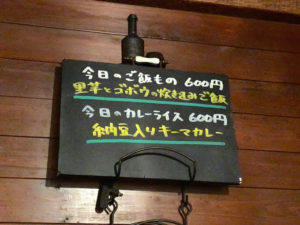 今日のご飯もの 600円
里芋とゴボウの炊き込みご飯
今日のカレーライス 600円
納豆入りキーマカレー